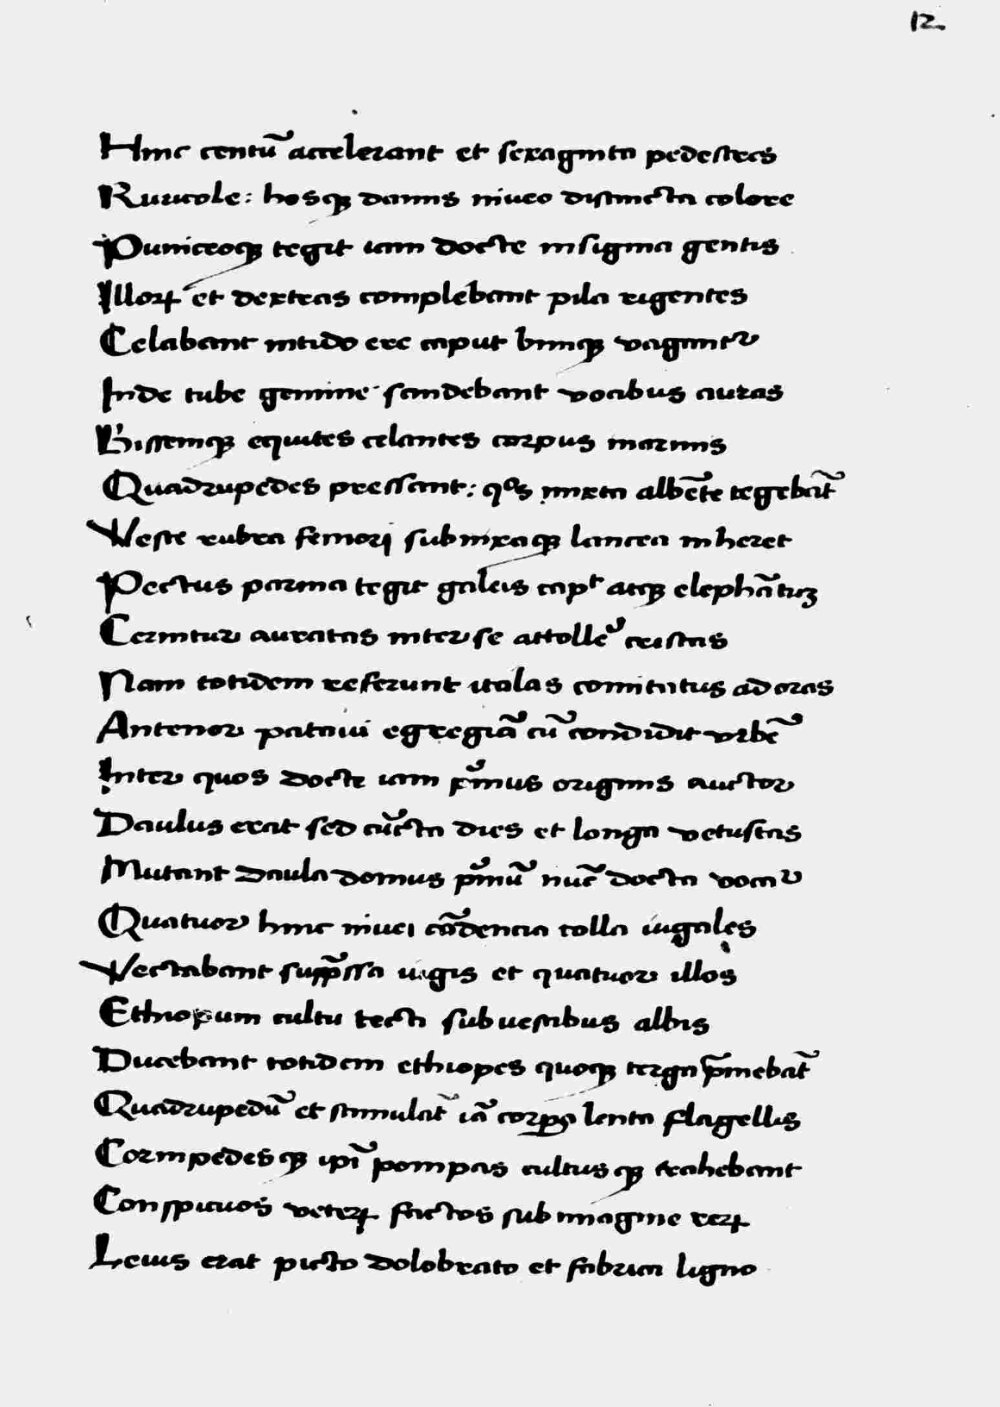 12
Hinc centũ accelerant et sexaginta pedestres
Ruricole: hosqꝫ danus niueo distincta colore
Puniceoqꝫ tegit iam docte insignia gentis
Illoꝝ et dextras complebant pila rigentes
Celabant nitido ere caput biniqꝫ vagantᷣ
Inde tube gemine scindebant vocibus auras
Bisseniqꝫ equites celantes corpus in armis
Quadrupedes pressant: qͦs mixta albẽte tegebãt
Veste rubra femori subnixaqꝫ lancea inheret
Pectus parma tegit galeis capᵗ atqꝫ elephãtiꝫ
Cernitur auratas inter se attollẽ cristas
Nam totidem referunt italas comitatus ad oras
Antenor pataui egregiã cũ condidit vrbẽ
Inter quos docte iam p̃mus originis auctor
Daulus erat sed cũcta dies et longa vetustas
Mutant daula domus p̃mũ nũc docta vocaᷣ
Quatuor hinc niuei cãdencia colla iugales
Vectabant supp̃ssa iugis et quatuor illos
Ethiopum cultu tecti sub uestibus albis
Ducebant totidem ethiopes quoqꝫ terga p̃mebãt
Quadrupedũ et stimulãt iã corꝑa lenta flagellis
Cornipedesqꝫ ip̃i pompas cultusqꝫ trahebant
Conspicuos veteꝝ factos sub imagine reꝝ
Leuis erat picto dolobrato et fabrica ligno